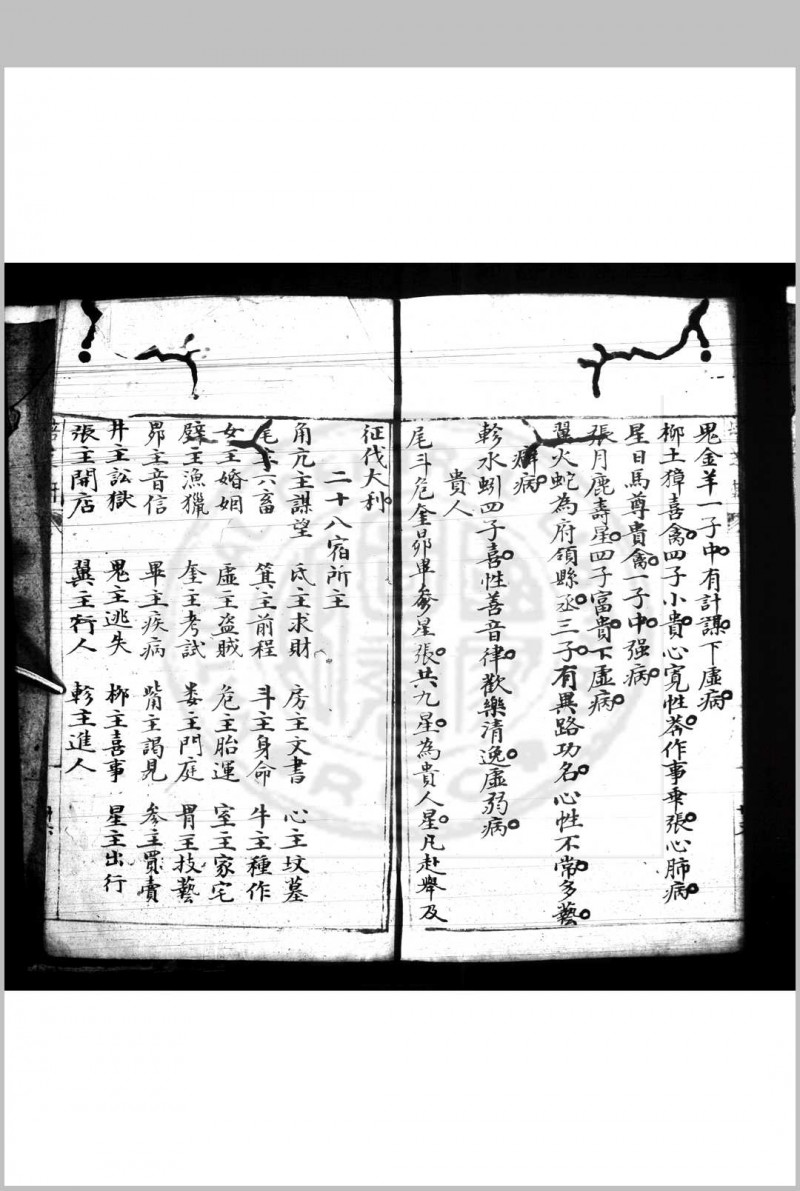 鬼金羊一子中有計謀下虛病
柳土獐喜禽四子小貴心寬性善作事乖張心肺病
星日馬尊貴禽一子中强病
張月鹿壽星四子富貴下虛病
翼火蛇為府領縣丞三子有異路功名心性不常多藝
癖病
軫水蚓四子喜性善音律歡樂清逸虛弱病
貴人
尾斗危奎昴畢參星張共九星為貴人星凡赴舉及
征伐大利
二十八宿所主
角亢主謀望 氐主求財 房主文書 心主墳墓
尾主六畜 箕主前程 斗主身命 牛主種作
女主婚姻 虛主盗賊 危主胎運 室主家宅
壁主漁獵 奎主考試 娄主門庭 胃主技藝
昴主音信 畢主疾病 觜主謁見 參主買賣
井主訟獄 鬼主逃失 柳主喜事 星主出行
張主開店 翼主行人 軫主進人